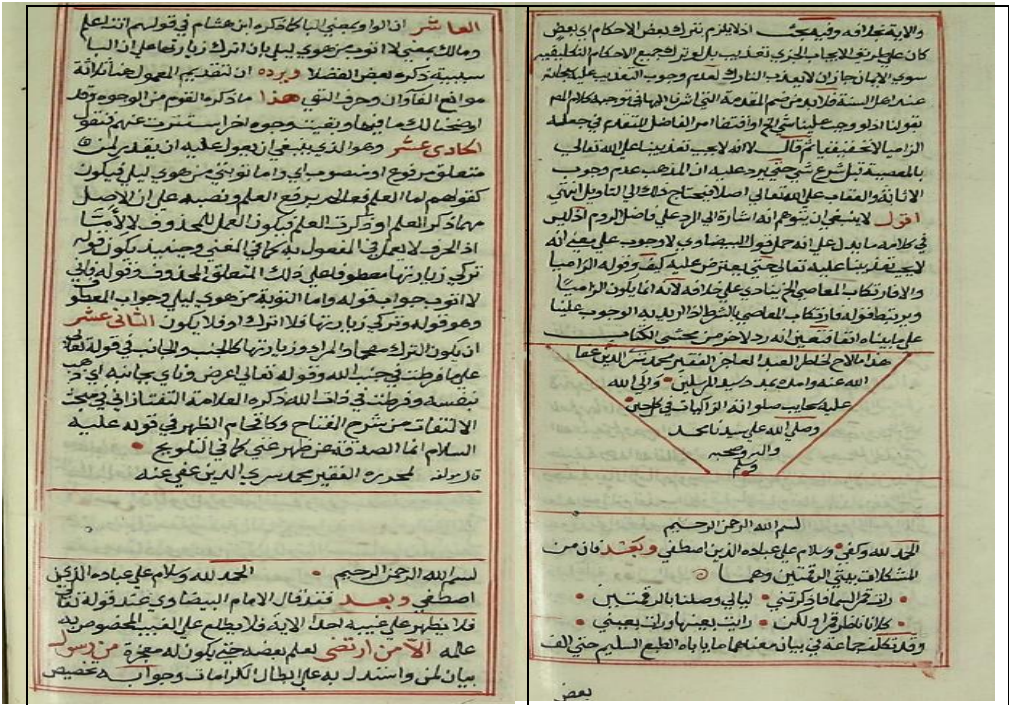 والاية بخلافه وفيه بحث اذ لا يلزم بترك بعض الاحكام اي بعض
كان على طريق الايجاب الجزئي تعذيب بل لو ترك جميع الاحكام التكليفية
سوى الايمان جاز ان لا يعذب التارك لعدم وجوب التعذيب على
عند اهل السنة فلا بد من ضم المقدمة التي اشرنا اليها في توجيه كلام المص
بقولنا اذ لو وجب علينا شي الخ واقتفا امر الفاضل المتقدم في جعله
الزاميا لا تحقيقيا ثم قال لا انه لا يجب تعذيبنا على الله تعالى
بالمعصية قبل شرع شي حتى يرد عليه ان المذهب عدم وجوب
الاثابة والعقاب على الله تعالى اصلا فيحتاج ذلك الى التاويل انتهى
اقول لا ينبغي ان يتوهم انه اشارة الى الرد على فاضل الروم اذ ليس
في كلامه ما يدل على انه حمل قول البيضاوي لا وجوب على معنى انه
لا يجب تعذيبنا عليه تعالى حتى يعترض عليه كيف وقوله الزاميا
والا فارتكاب المعاصي الخ ينادي على خلافه لانه انما يكون الزاميا
ويرتبط قوله فارتكاب المعاصي بالشرط اذا اريد به الوجوب علينا
على ما بيناه انفا فتعين انه رد لاخر من محشي الكتاب
هذا ما لاح لخاطر العبد العاجز الفقير محمد سري الدين عفا
الله عنه وامده بمدد سيد المرسلين والى الله
عليه سحايب صلواته الزاكيات في كل حين
وصلى الله على سيدنا محمد
واله وصحبه
وسلم
بسم الله الرحمن الرحيم
الحمد لله وكفى وسلام على عباده الذين اصطفى وبعد فان من
المشكلات بيتي الرقمتين وهما
رات قمر السما فاذكرتني ليالي وصلنا بالرقمتين
كلانا ناظر قمرا ولكن رايت بعينها ورات بعيني
وقد تكلم جماعة في بيان معناهما ما ياباه الطبع السليم حتى الف
بعض
العاشر ان الواو بمعنى البا كما ذكره ابن هشام في قولهم انت اعلم
ومالك بمعنى لا اتوب من هوى ليلى بان اترك زيارتها على ان البا
سببية ذكره بعض الفضلا ويرده ان لتقديم المعمول هنا ثلاثة
موانع الفا وان وحرف النفي هذا ما ذكره القوم من الوجوه وقد
اوضحنا لك ما فيها وبقيت وجوه اخر استترت عنهم فنقول
الحادي عشر وهو الذي ينبغي ان يعول عليه ان يقدر لمن
متعلق مرفوع او منصوب اي واما توبتي من هوى ليلى فيكون
كقولهم اما العلم فعالم برفع العلم ونصبه على ان الاصل
مهما ذكر العلم او ذكرت العلم فيكون العمل للمحذوف لا لاما
اذ الحرف لا يعمل في المفعول به كما في المغني وحينئذ يكون قوله
تركي زيارتها معطوفا على ذلك المتعلق المحذوف وقوله فاني
لا اتوب جواب قوله واما التوبة من هوى ليلى وجواب المعطو
وهو قوله وتركي زيارتها فلا اترك او فلا يكون الثاني عشر
ان يكون الترك مقحما والمراد وزيارتها كالجنب والجانب في قوله تعالى
على ما فرطت في جنب الله وقوله تعالى اعرض وناى بجانبه اي ذهب
بنفسه وفرطت في ذات الله ذكره العلامة التفتازاني في مبحث
الالتفات من شرح المفتاح وكاقحام الظهر في قوله عليه
السلام انما الصدقة عن ظهر غنى كما في التلويح
قال مولفه لمحرره الفقير محمد سري الدين عفي عنه
بسم الله الرحمن الرحيم الحمد لله وسلام على عباده الذين
اصطفى وبعد فقد قال الامام البيضاوي عند قوله تعالى
فلا يظهر على غيبه احدا الاية فلا يطلع على الغيب المخصوص به
علمه الا من ارتضى لعلم بعضه حتى يكون له معجزة من رسول
بيان لمن واستدل به على ابطال الكرامات وجوابه تخصيص